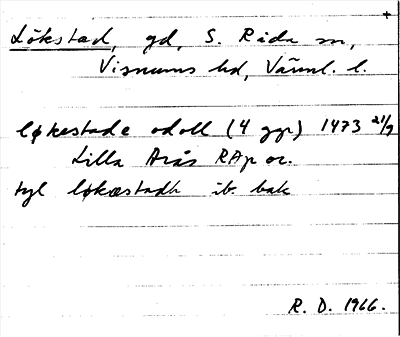 +
Lökstad, gd, S. Råda sn,
Visnums hd, Värml. l.
løkestade odoll (4 ggr) 1473 21/9
Lilla Arås RAp or.
tyl løkæstadh ib. bak
R. D. 1966.